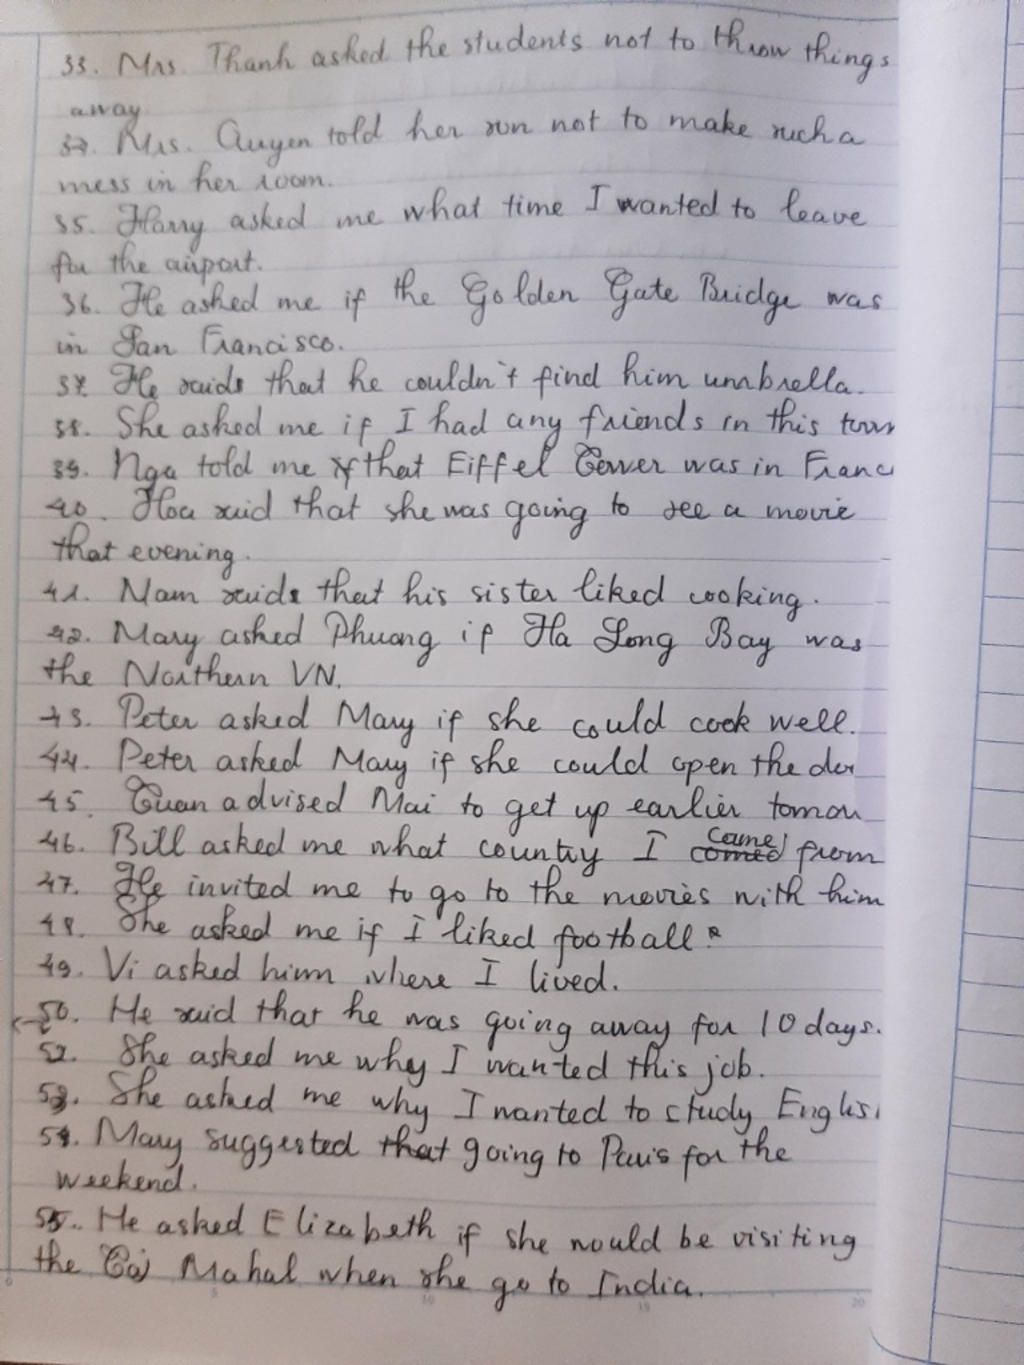 33. Mrs. Thanh asked the students not to throw things
away
34. Mrs. Quyen told her son not to make such a
mess in her room.
35. Harry asked me what time I wanted to leave
for the airport.
36. He asked me if the Golden Gate Bridge was
in San Francisco.
37. He saids that he couldn't find him umbrella.
38. She asked me if I had any friends in this town
39. Nga told me that Eiffel Tower was in Franc
40. Hoa said that she was going to see a movie
that evening.
41. Nam saids that his sister liked cooking.
42. Mary asked Phuong if Ha Long Bay was
the Northern VN.
43. Peter asked Mary if she could cook well.
44. Peter asked Mary if she could open the dor
45. Tuan advised Mai to get up earlier tomou
46. Bill asked me what country I came from
47. He invited me to go to the movies with him
48. She asked me if I liked football.
49. Vi asked him where I lived.
50. He said that he was going away for 10 days.
52. She asked me why I wanted this job.
53. She asked me why I wanted to study Englis
54. Mary suggested that going to Paris for the
weekend.
55. He asked Elizabeth if she would be visiting
the Taj Mahal when she go to India.